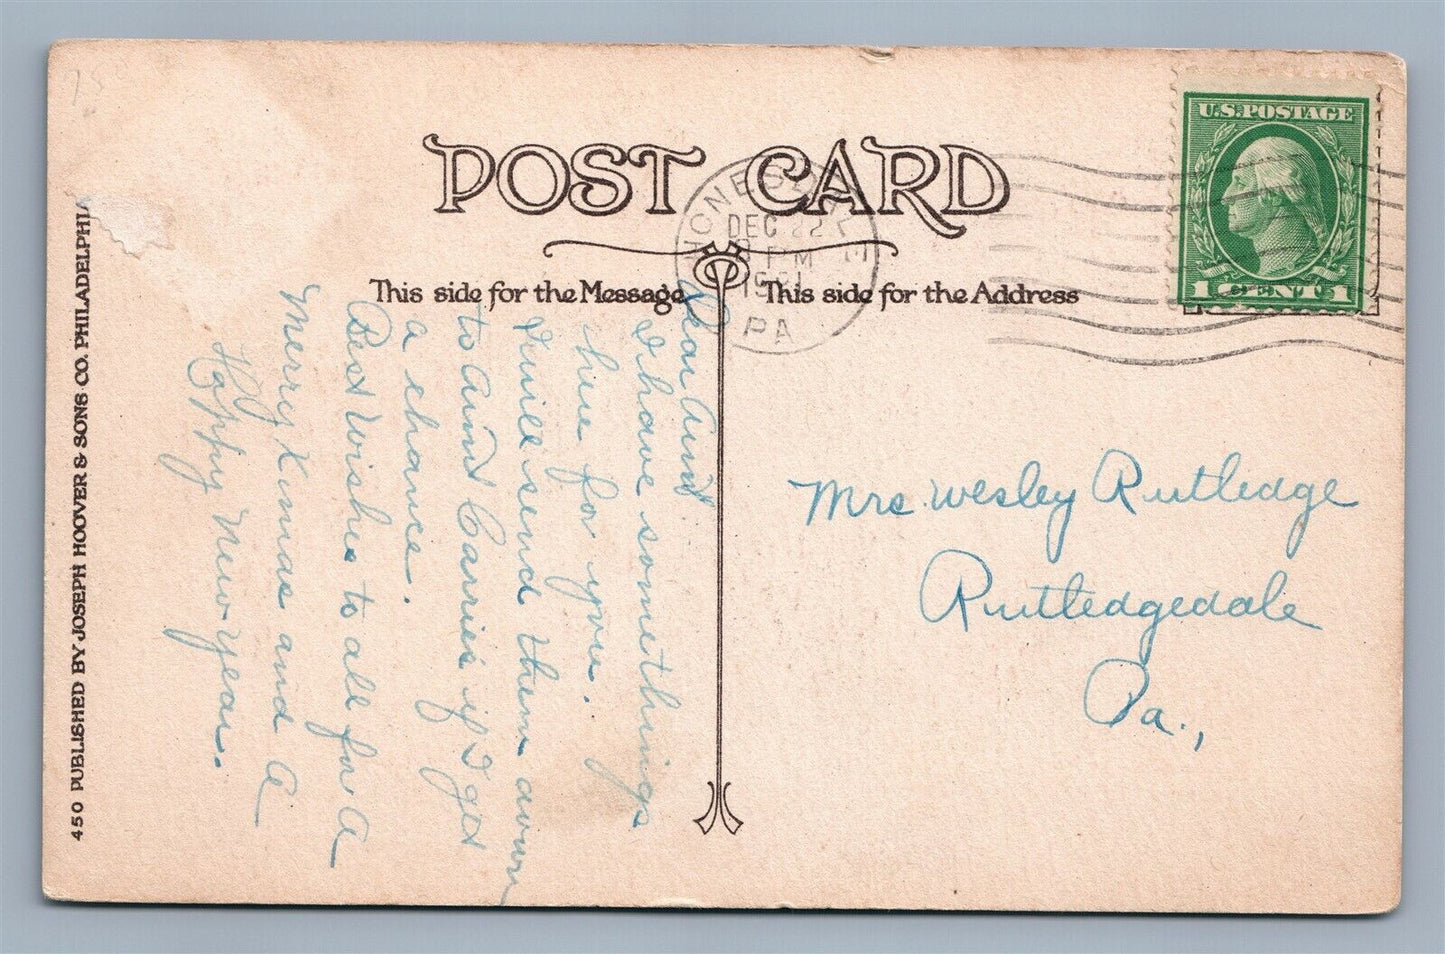 POST CARD
This side for the Message
This side for the Address
U.S. POSTAGE
1 CENT 1
HONESDALE
DEC 22
PM
PA
Dear Aunt
I have somethings
here for you.
I will send them down
to Aunt Carries if I get
a chance.
Best Wishes to all for A
Merry Xmas and A
Happy New year.
Mrs. Wesley Rutledge
Rutledgedale
Pa.,
450 PUBLISHED BY JOSEPH HOOVER & SONS CO. PHILADELPHIA